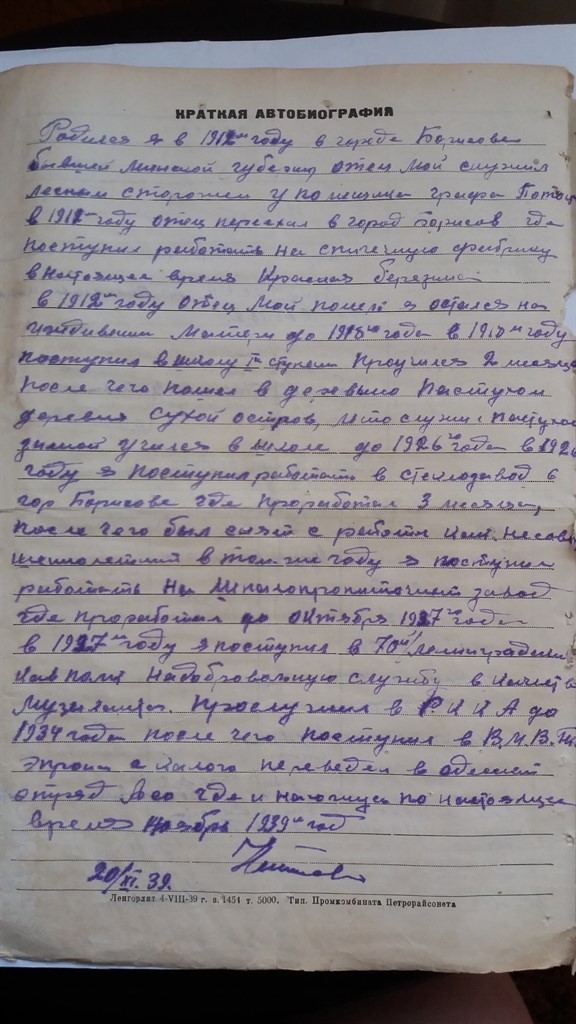 КРАТКАЯ АВТОБИОГРАФИЯ
Родился я в 1912м году в городе Борисове
бывшей Минской губерни отец мой служил
лесным сторожем у помещика графа
в 1912м году отец переехал в город Борисов где
поступил работать на спичечную фабрику
в настоящее время Красная березина
в 1912м году отец мой я остался на
иждивении матери до 1918го года в 1918м году
поступил в школу ступени проучился 2 месяца
после чего пошел в деревню пастухом
деревня Сухой остров,
зимой учился в школе до 1926го года в 1926
году я поступил работать в стеклозавод в
гор Борисове где проработал 3 месяца,
после чего был снят с работы как несове
шенолетний в том-же году я поступил
работать на Шпалопропиточный завод
где проработал до октября 1927го года
в 1927м году я поступил в 70й Ленинградский
кав полк надобровольную службу в качестве
музыканта. Прослужил в Р.К К А до
1934 года после чего поступил в
Эпрон с переведен в одесский
отряд где и нахожусь по настоящее
время ноябрь 1939м год
20/XI. 39.
Ленгорлит 4-VIII-39 г. з. 1451 т. 5000. Тип. Промкомбината Петрорайсовета